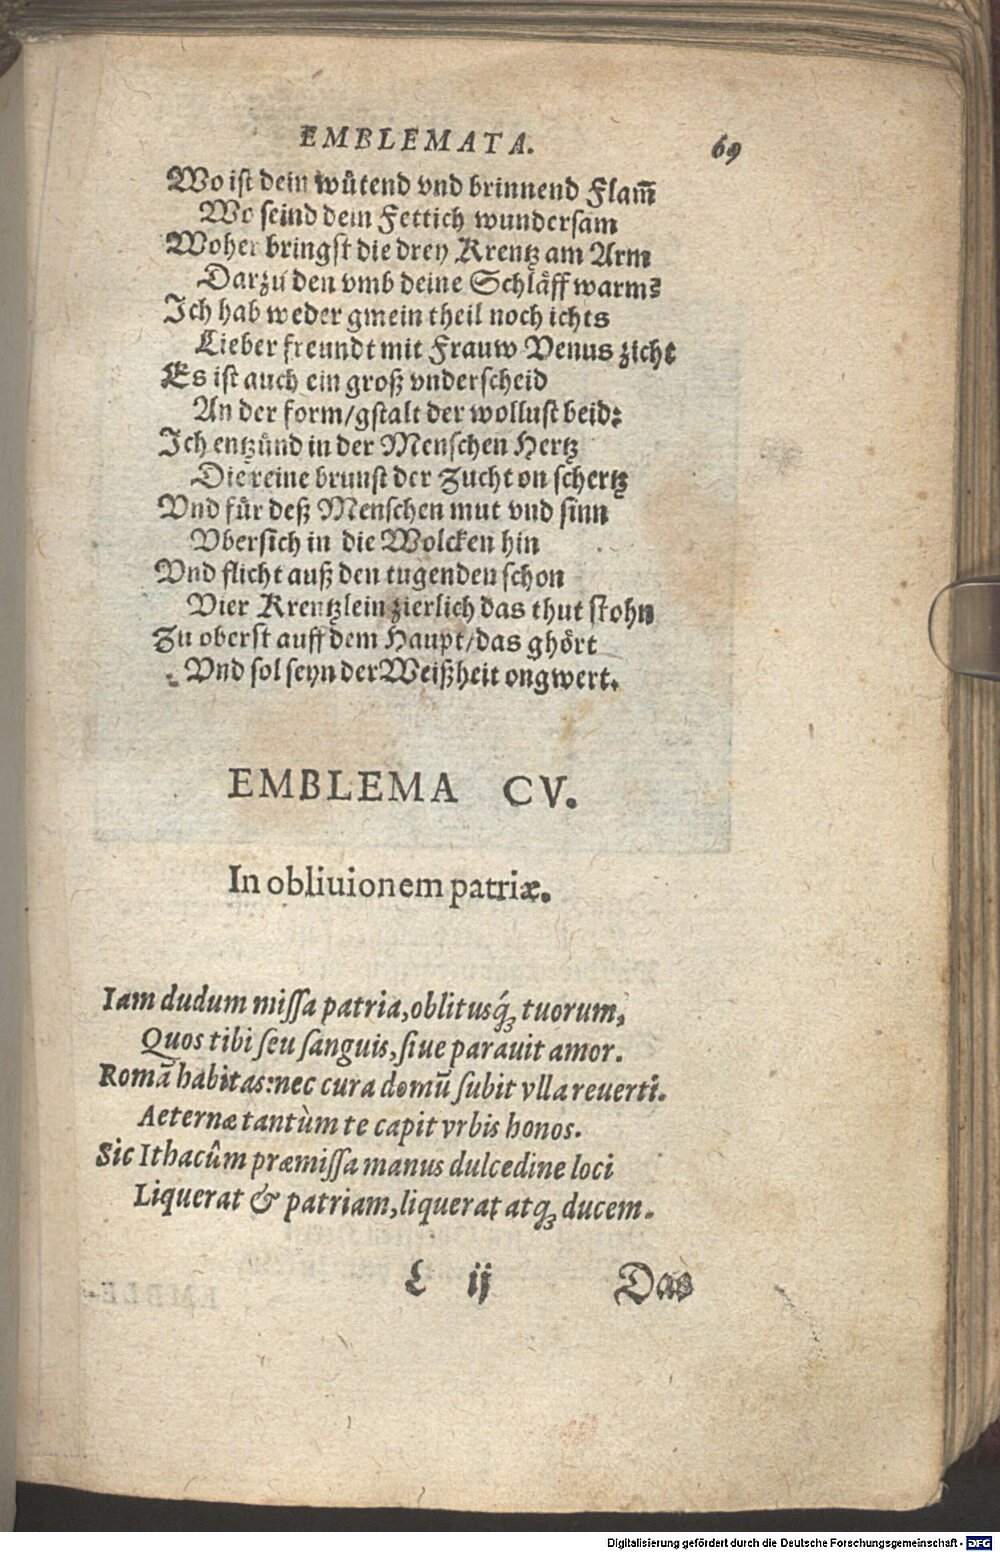 EMBLEMATA. 69
Wo ist dein wütend vnd brinnend Flam̃
Wo seind dein Fettich wundersam
Woher bringst die drey Krentz am Arm
Darzu den vmb deine Schläff warm?
Ich hab weder gmein theil noch ichts
Lieber freundt mit Frauw Venus zicht
Es ist auch ein groß vnderscheid
An der form/gstalt der wollust beid:
Ich entzünd in der Menschen Hertz
Die reine brunst der Zucht on schertz
Vnd für deß Menschen mut vnd sinn
Vbersich in die Wolcken hin
Vnd flicht auß den tugenden schon
Vier Krentzlein zierlich das thut stohn
Zu oberst auff dem Haupt/das ghört
Vnd sol seyn der Weißheit ongwert.
EMBLEMA CV.
In obliuionem patriæ.
Iam dudum missa patria, oblitusq́ꝫ tuorum,
Quos tibi seu sanguis, siue parauit amor.
Romā habitas: nec cura domū subit vlla reuerti.
Aeternæ tantùm te capit vrbis honos.
Sic Ithacûm præmissa manus dulcedine loci
Liquerat & patriam, liquerat atqꝫ ducem.
L ij Das
Digitalisierung gefördert durch die Deutsche Forschungsgemeinschaft - DFG